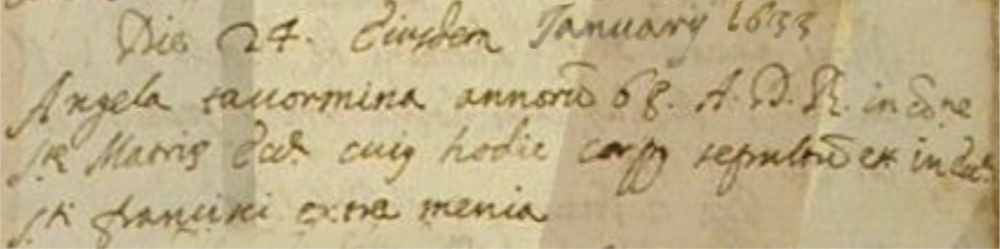 Die 24. Eiusdem Januarij 1633
Angela tauormina annorũ 68. A. D. R. in Cõne
S.te Matris Eccl. cuiꝰ hodie corpꝰ sepultũ est in Eccl.
S.ti francisci extra menia